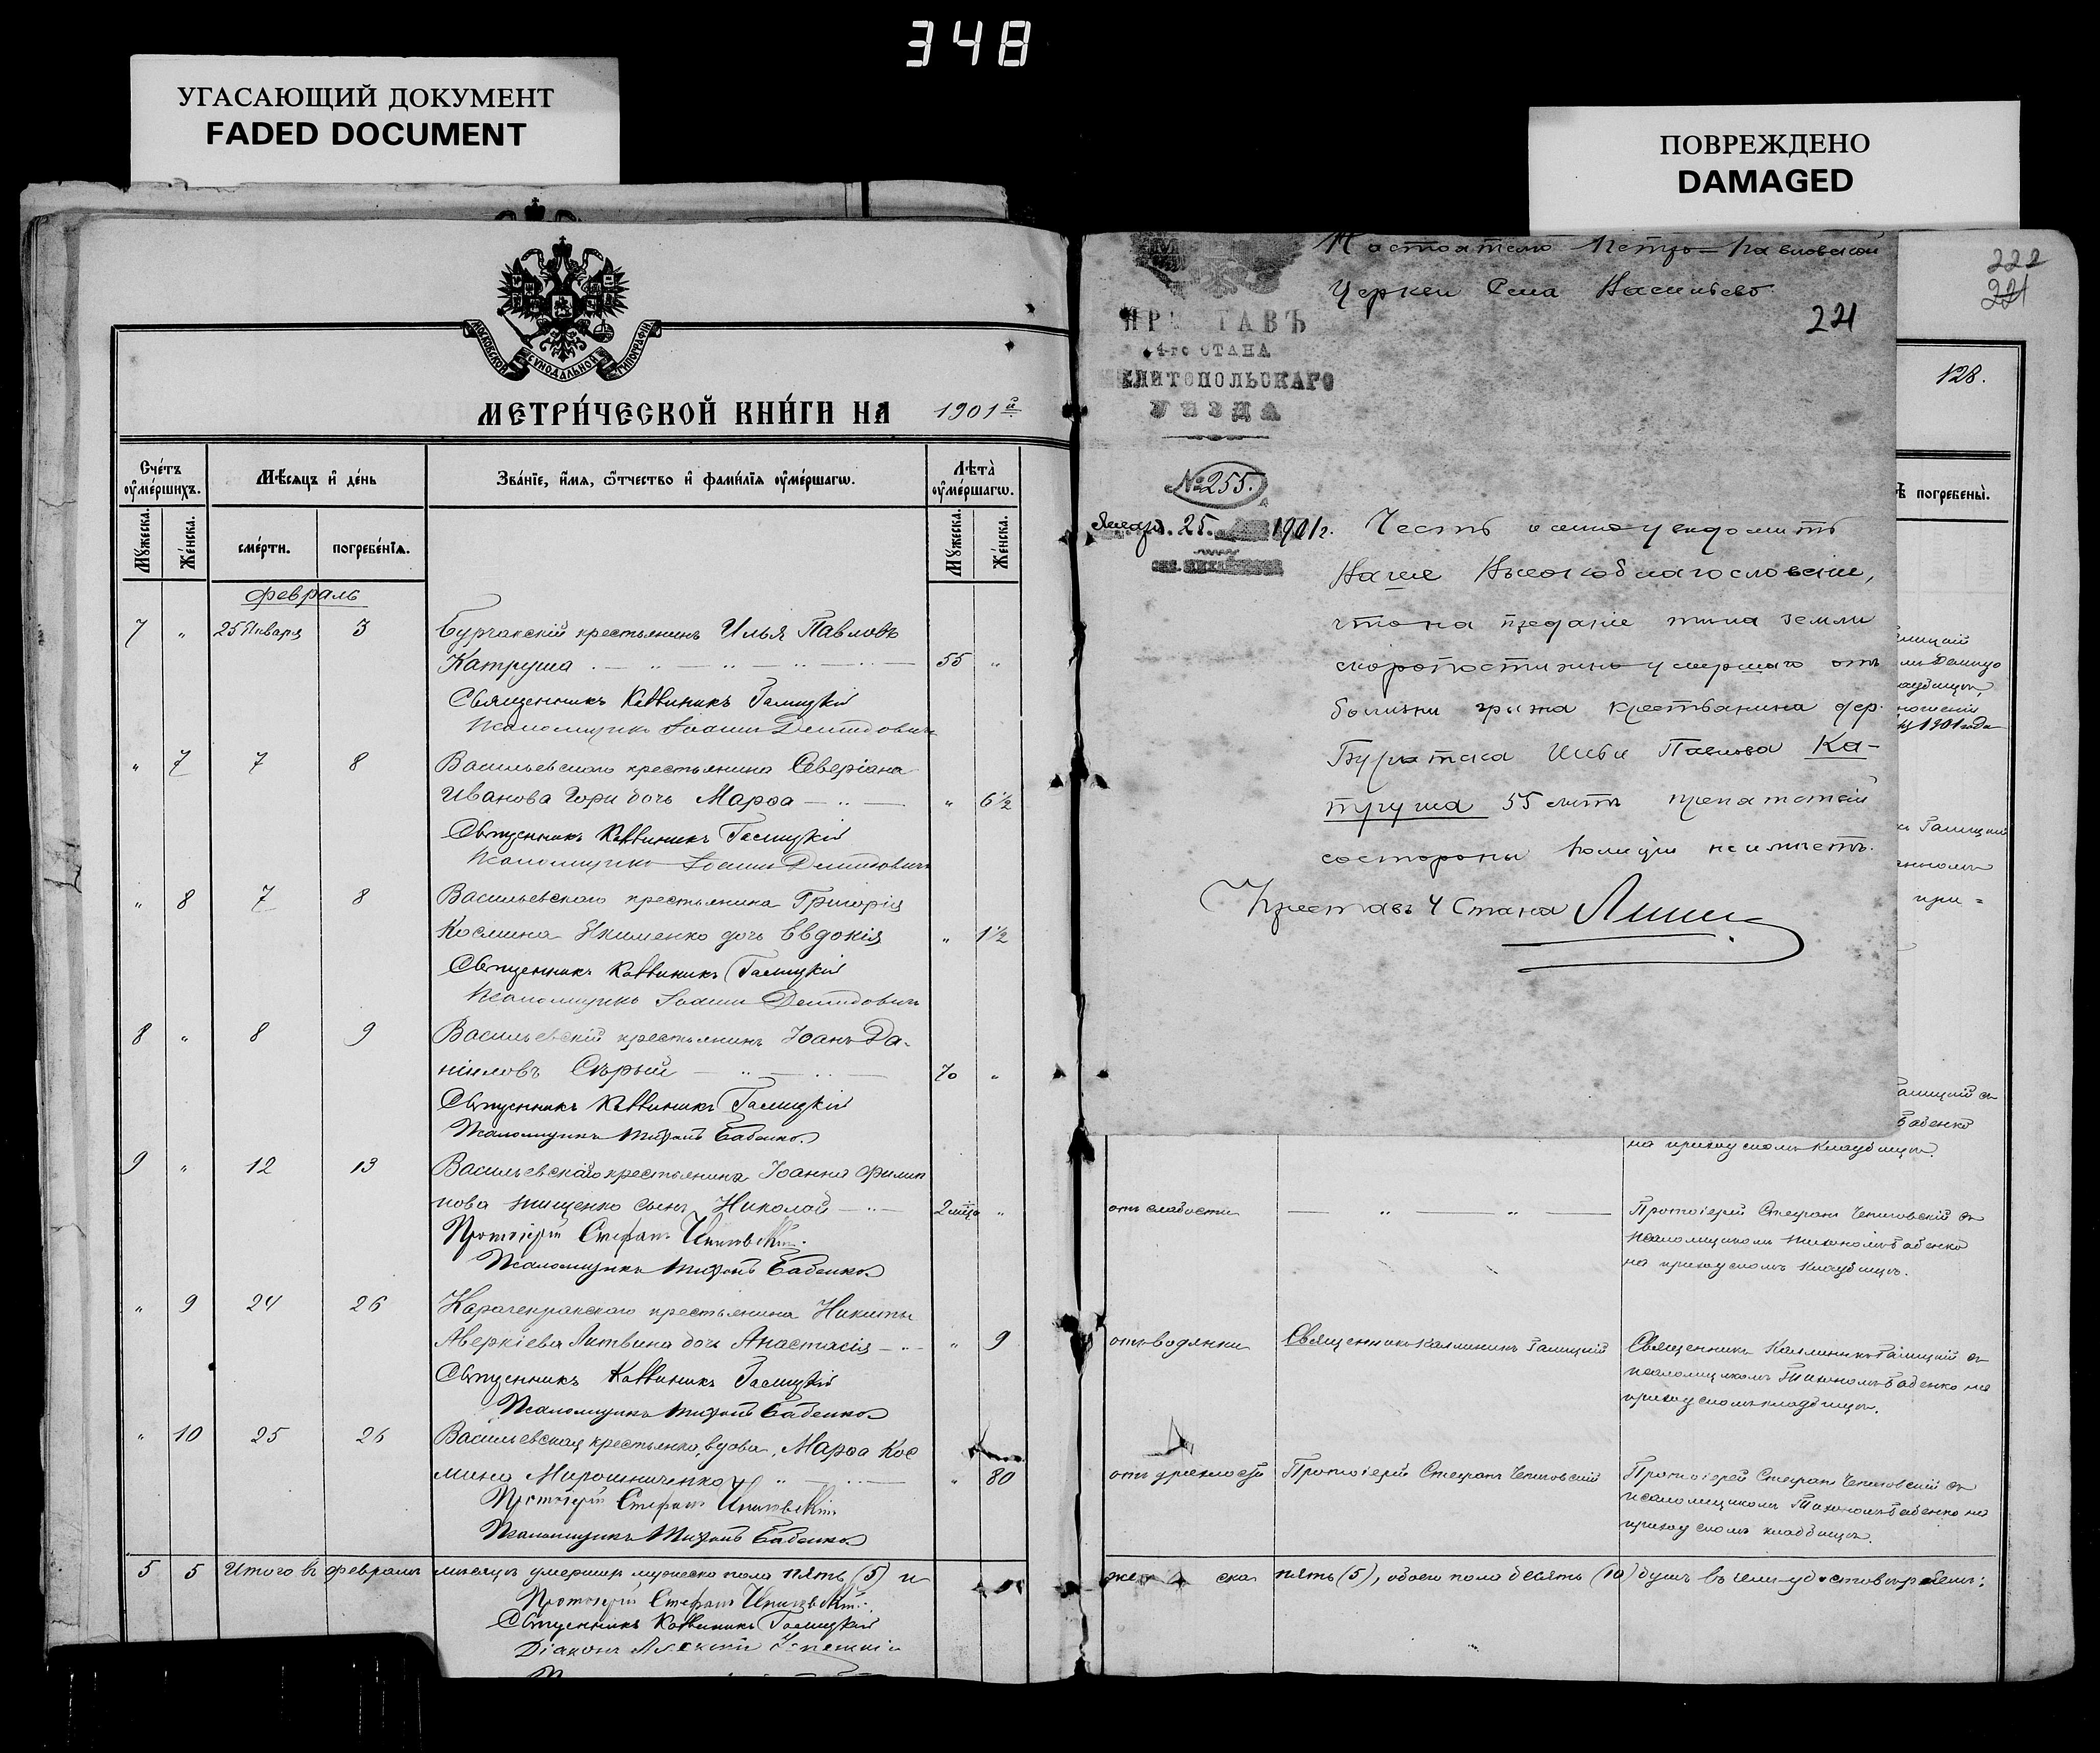 348
УГАСАЮЩИЙ ДОКУМЕНТ
FADED DOCUMENT
ПОВРЕЖДЕНО
DAMAGED
МОСКОВСКОЙ СѴНОДАЛЬНОЙ ТИПОГРАФІИ
МЕТРИ́ЧЕСКОЙ КНИ́ГИ НА 1901й
Сче́тъ оумершихъ.
Мѣсяцъ и де́нь
Зва́ніе, и́мя, ѻтчество и фами́лія оуме́ршагѡ.
Лѣта̀ оумершагѡ.
Мужеска.
Же́нска.
сме́рти.
погребе́нія.
Мужеска.
Же́нска.
Февраль
7 " 25 Января 3 Бурчакскій крестьянинъ Илья Павловъ
Катруша 55 "
Священникъ Каллиникъ Галицкій
Псаломщикъ Іоаннъ Демидовичъ
" 7 7 8 Васильевскаго крестьянина Северіана
Иванова Гори дочь Марѳа " 6½
Священникъ Каллиникъ Галицкій
Псаломщикъ Іоаннъ Демидовичъ
" 8 7 8 Васильевскаго крестьянина Григорія
Космина Якименко дочь Евдокія " 1½
Священникъ Каллиникъ Галицкій
Псаломщикъ Іоаннъ Демидовичъ
8 " 8 9 Васильевскій крестьянинъ Іоанъ Да-
ніиловъ Сѣрый 70 "
Священникъ Каллиникъ Галицкій
Псаломщикъ Тихонъ Бабенко.
9 " 12 13 Васильевскаго крестьянина Іоанна Филип
пова Онищенко сынъ Николай 2 мѣс "
Протоіерей Стефанъ
Псаломщикъ Тихонъ Бабенко
" 9 24 26 Карачекракскаго крестьянина Никиты
Аверкіева Литвина дочь Анастасія " 9
Священникъ Каллиникъ Галицкій
Псаломщикъ Тихонъ Бабенко
" 10 25 26 Васильевская крестьянка, вдова, Марѳа Кос
мина Мирошниченкова " 80
Протоіерей Стефанъ
Псаломщикъ Тихонъ Бабенко
5 5 Итого въ февралѣ мѣсяцѣ умершихъ мужеска пола пять (5) и
Протоіерей Стефанъ
Священникъ Каллиникъ Галицкій
Діаконъ Алексій
Настоятелю Петро-Павловской
Церкви Села Васильево
222
221
221
ПРИСТАВЪ
4-го СТАНА
МЕЛИТОПОЛЬСКАГО
УѢЗДА
№255.
Января 25. 1901 г.
Честь имѣю увѣдомить
Ваше Высокоблагословеніе,
что на преданіе тѣла земли
скоропостижно умершаго отъ
болѣзни грыжа крестьянина дер.
Бурчака Ильи Павлова Ка-
труша 55 лѣтъ препятствій
со стороны Полиціи неимѣетъ.
Приставъ 4 Стана
128.
погребены̀.
1901 года
Галицкій
при=
Бабенко
на приходскомъ кладбищѣ.
отъ слабости
Протоіерей Стефанъ
псаломщикомъ Тихономъ Бабенко
на приходскомъ кладбищѣ.
отъ водянки Священникъ Каллиникъ Галицкій
Священникъ Каллиникъ Галицкій съ
псаломщикомъ Тихономъ Бабенко на
приходскомъ кладбищѣ.
отъ дряхлости Протоіерей Стефанъ
Протоіерей Стефанъ
псаломщикомъ Тихономъ Бабенко на
приходскомъ кладбищѣ.
женска пять (5), обоего пола десять (10) душъ